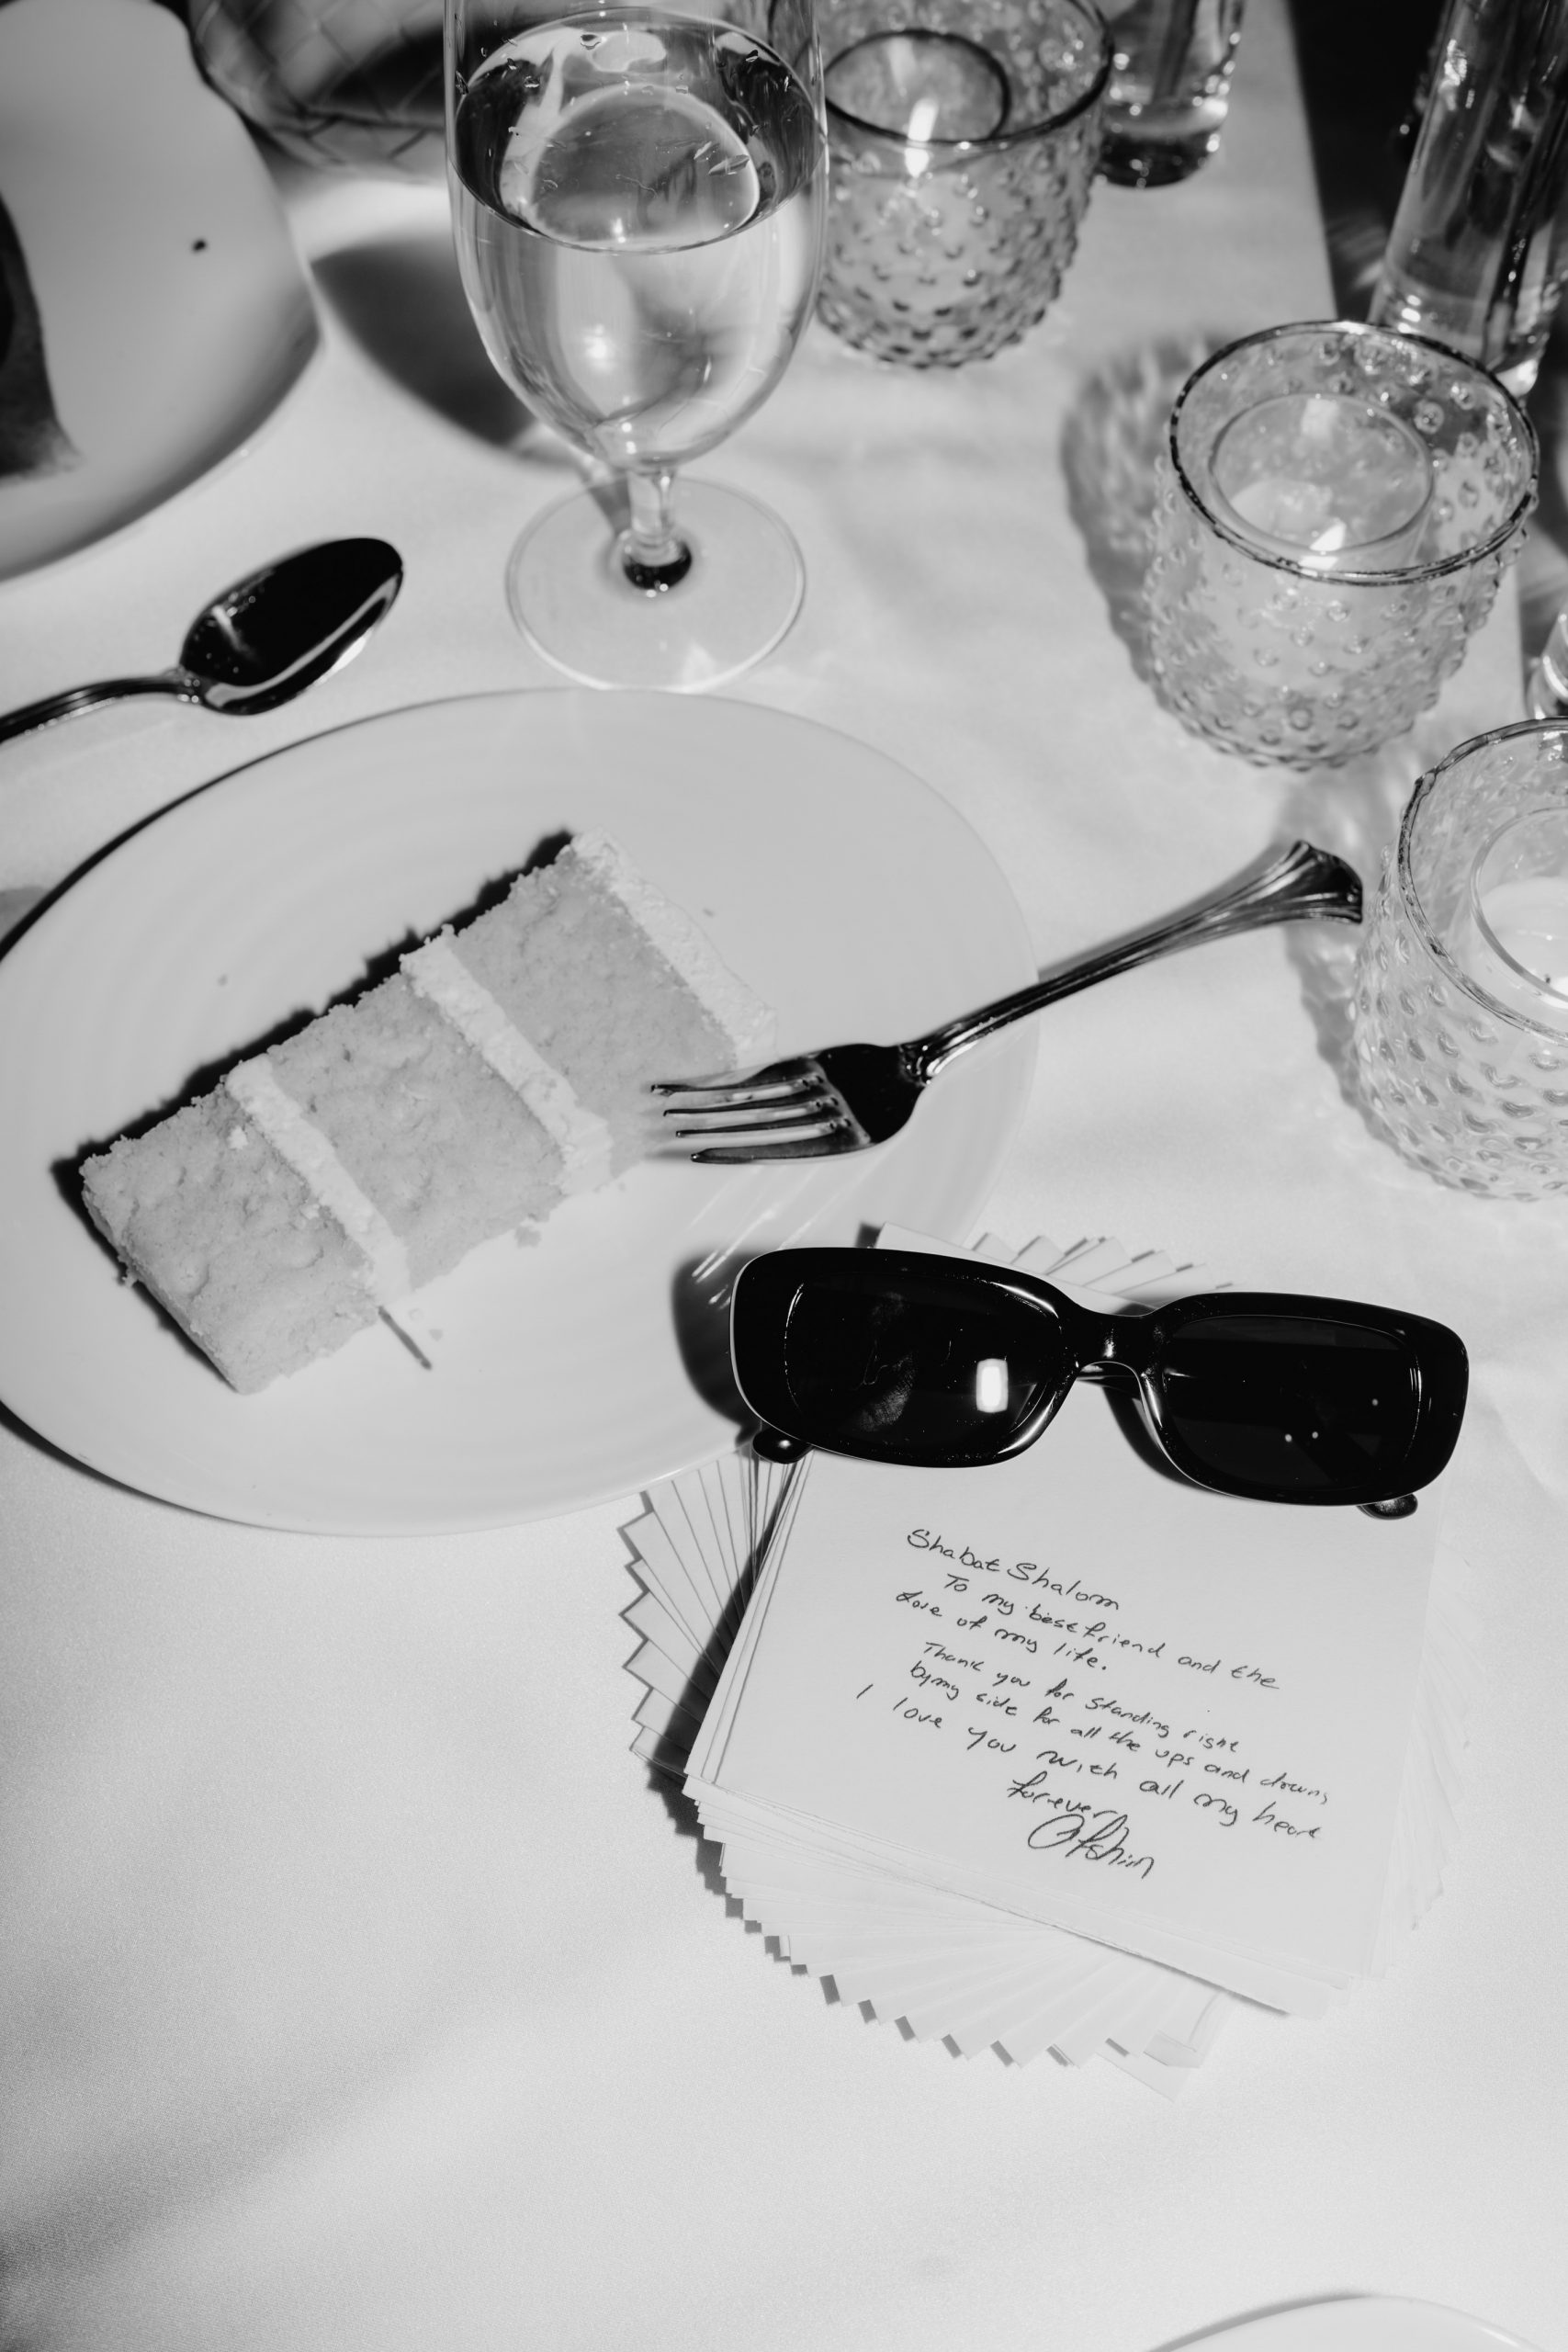 Shabat Shalom
To my best friend and the
Love of my life.
Thank you for standing right
by my side for all the ups and downs
I love you with all my heart
forever
Afshin